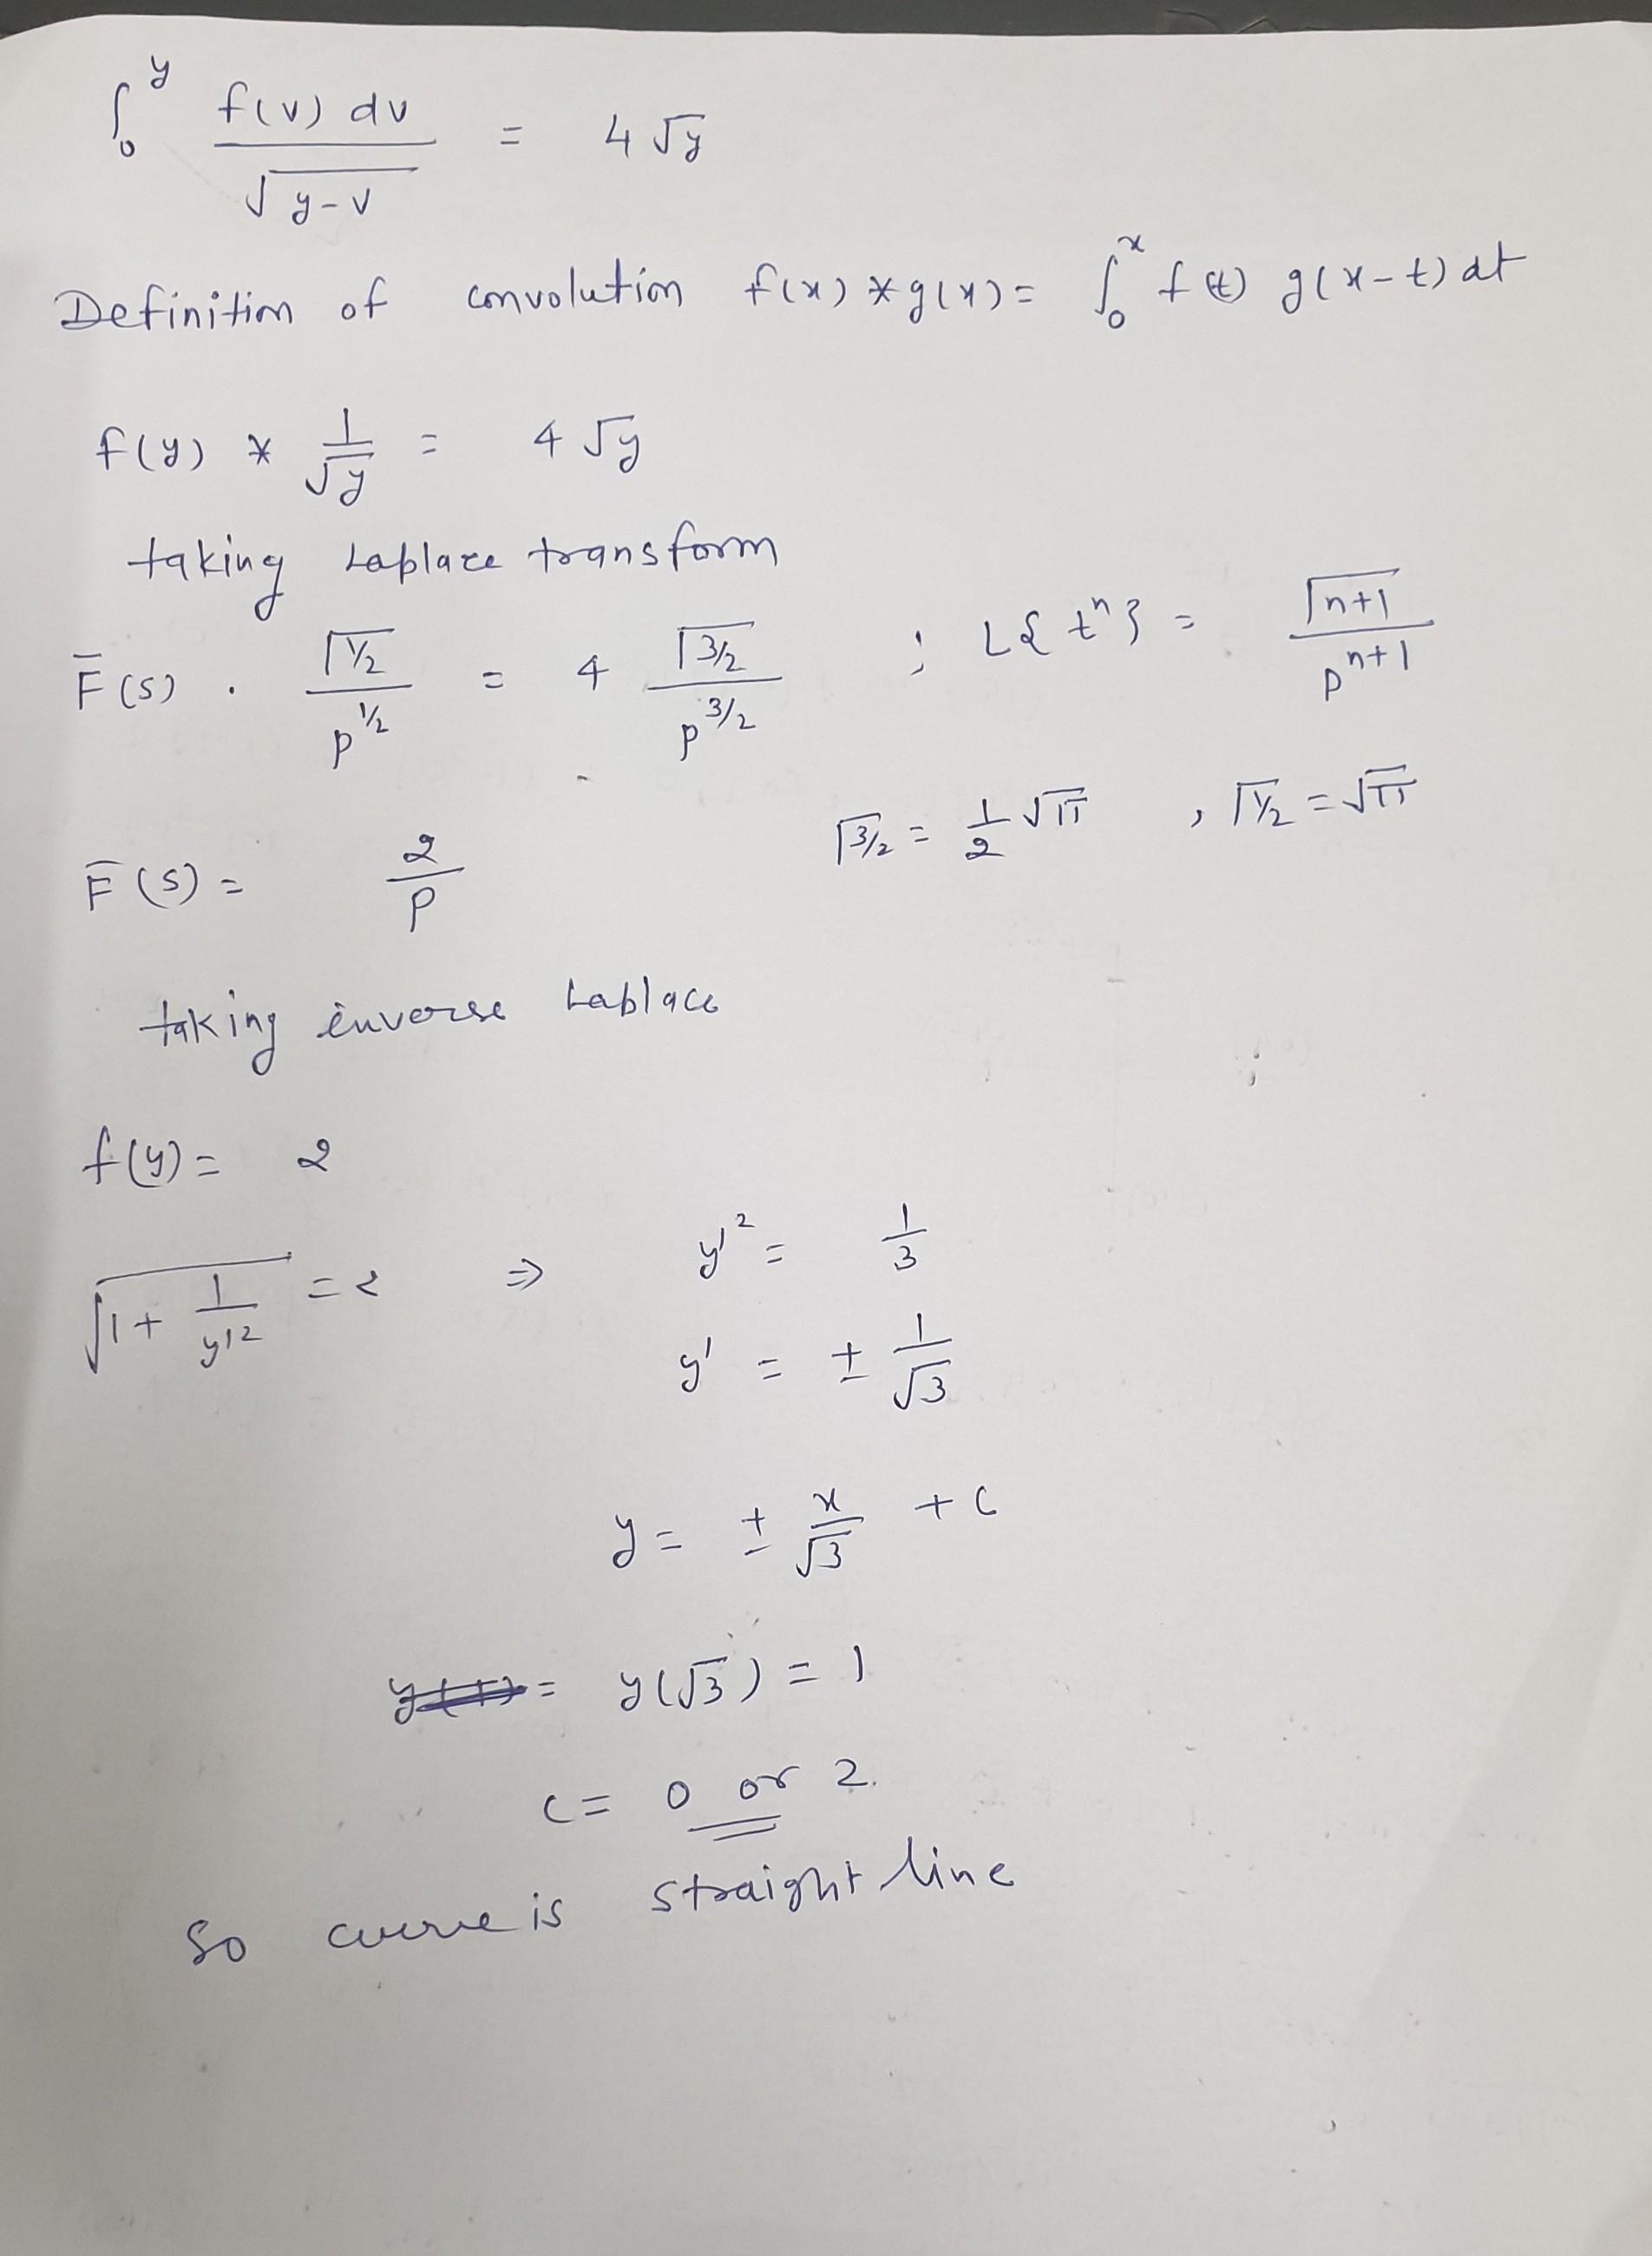 ∫₀^y f(v) dv / √(y-v) = 4√y
Definition of convolution f(x) * g(x) = ∫₀^x f(t) g(x-t) dt
f(y) * 1/√y = 4√y
taking Laplace transform
F̄(s) . Γ1/2 / p^1/2 = 4 Γ3/2 / p^3/2 ; L{t^n} = Γn+1 / p^n+1
Γ3/2 = 1/2 √π , Γ1/2 = √π
F̄(s) = 2/p
taking inverse Laplace
f(y) = 2
√(1 + 1/y'²) = 2 ⇒ y'² = 1/3
y' = ± 1/√3
y = ± x/√3 + c
= y(√3) = 1
c = 0 or 2.
So curve is straight line